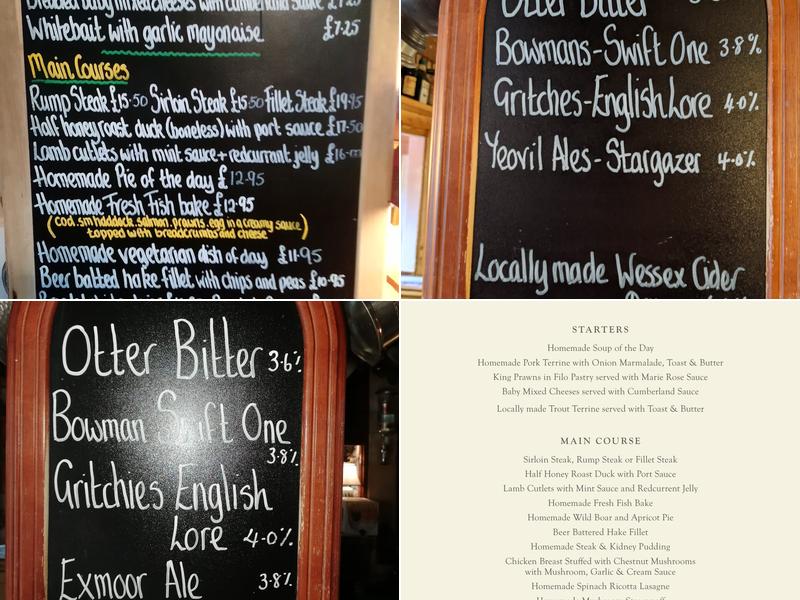 Breaded baby mixed cheeses with cumberland sauce £7.25
Whitebait with garlic mayonaise £7.25
Main Courses
Rump Steak £15.50 Sirloin Steak £15.50 Fillet Steak £19.95
Half honey roast duck (boneless) with port sauce £17.50
Lamb cutlets with mint sauce + redcurrant jelly £16
Homemade Pie of the day £12.95
Homemade Fresh Fish bake £12.95
(cod. sm haddock. salmon. prawns. egg in a creamy sauce
topped with breadcrumbs and cheese)
Homemade vegetarian dish of day £11.95
Beer batted hake fillet with chips and peas £10.95
Otter Bitter
Bowmans-Swift One 3.8%
Gritches-English Lore 4.0%
Yeovil Ales-Stargazer 4.0%
Locally made Wessex Cider
Otter Bitter 3.6%
Bowman Swift One
3.8%
Gritchies English
Lore 4.0%
Exmoor Ale 3.8%
STARTERS
Homemade Soup of the Day
Homemade Pork Terrine with Onion Marmalade, Toast & Butter
King Prawns in Filo Pastry served with Marie Rose Sauce
Baby Mixed Cheeses served with Cumberland Sauce
Locally made Trout Terrine served with Toast & Butter
MAIN COURSE
Sirloin Steak, Rump Steak or Fillet Steak
Half Honey Roast Duck with Port Sauce
Lamb Cutlets with Mint Sauce and Redcurrent Jelly
Homemade Fresh Fish Bake
Homemade Wild Boar and Apricot Pie
Beer Battered Hake Fillet
Homemade Steak & Kidney Pudding
Chicken Breast Stuffed with Chestnut Mushrooms
with Mushroom, Garlic & Cream Sauce
Homemade Spinach Ricotta Lasagne